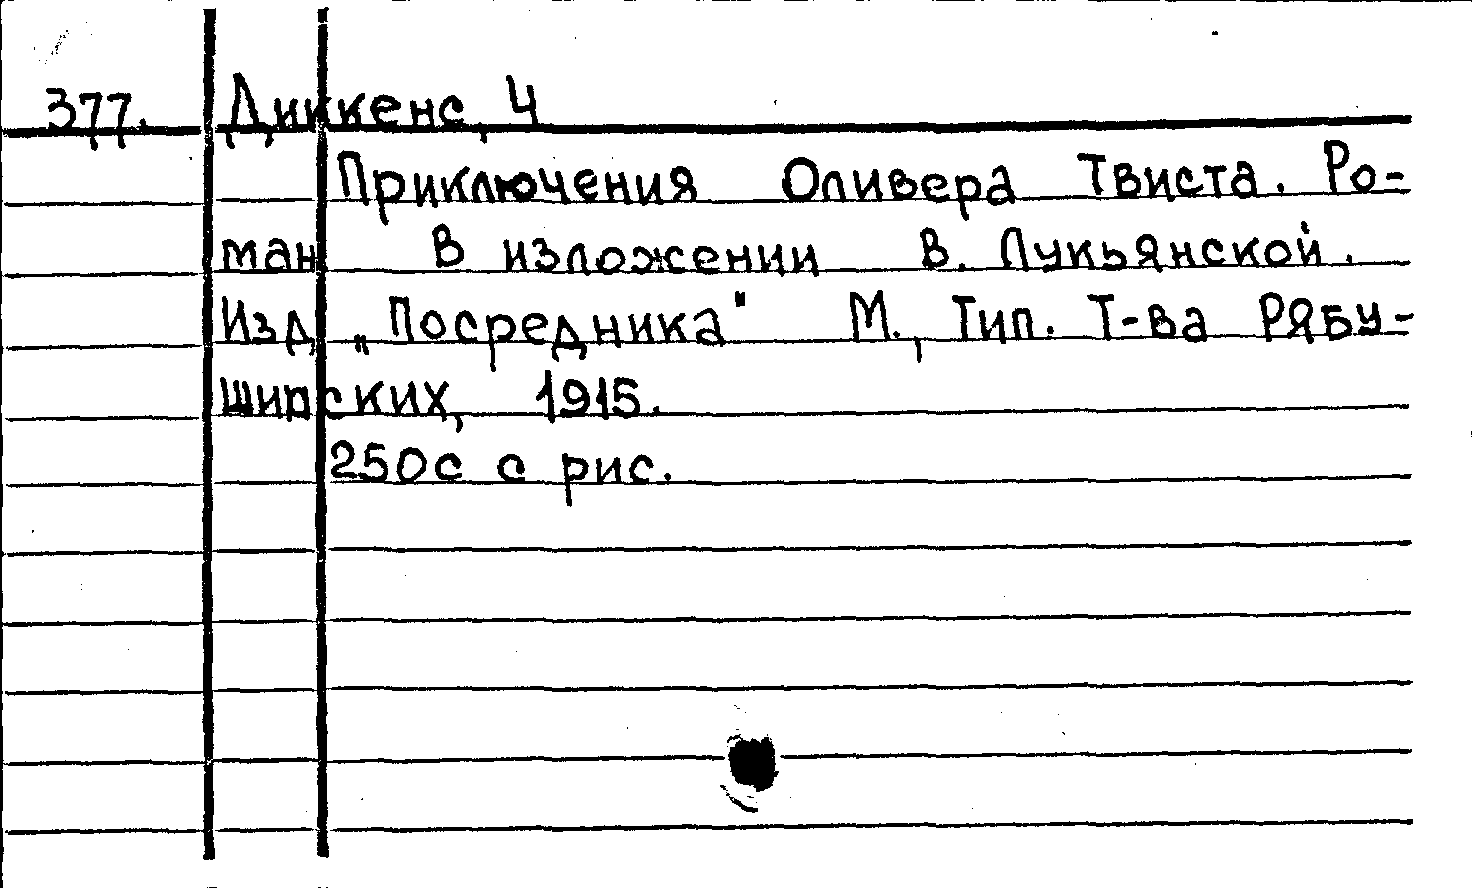 377. Диккенс, Ч
Приключения Оливера Твиста. Ро-
ман В изложении В. Лукьянской.
Изд „Посредника" М., Тип. Т-ва Рябу-
ширских, 1915.
250с с рис.